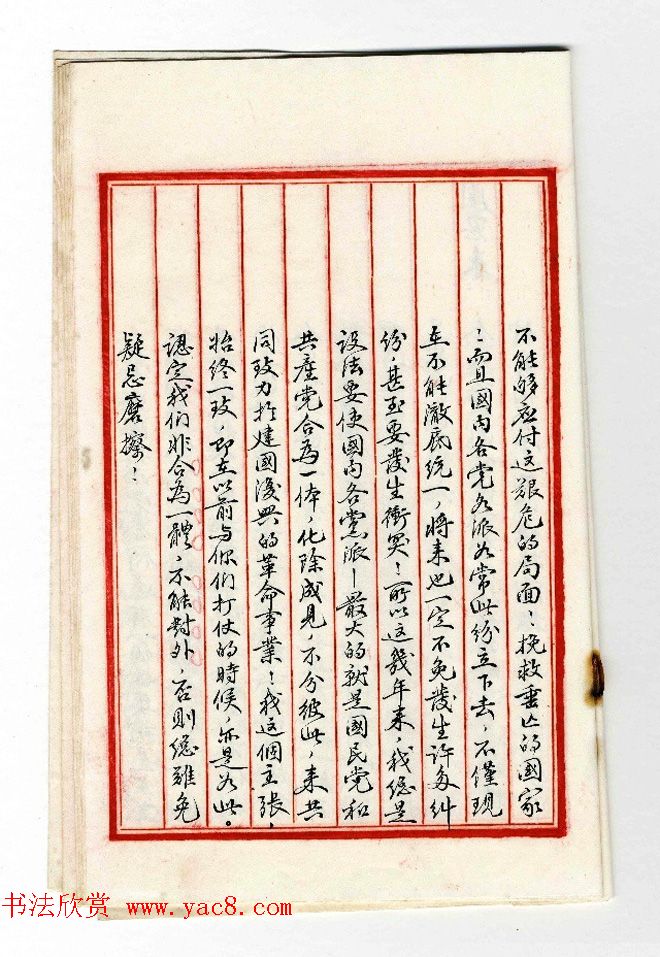 不能够应付这艰危的局面！挽救垂亡的國家
！而且國内各党各派如常此纷立下去，不僅現
在不能澈底统一，將来也一定不免發生许多纠
纷，甚至要發生衝突！所以这幾年来，我總是
设法要使國内各黨派—最大的就是國民党和
共産党合為一体，化除成見，不分彼此，来共
同致力於建國復興的革命事業！我这個主張，
始终一致，即在以前与你们打仗的時候，亦是如此。
認定我们非合為一體，不能對外，否則總難免
疑忌磨擦！
书法欣赏 www.yac8.com